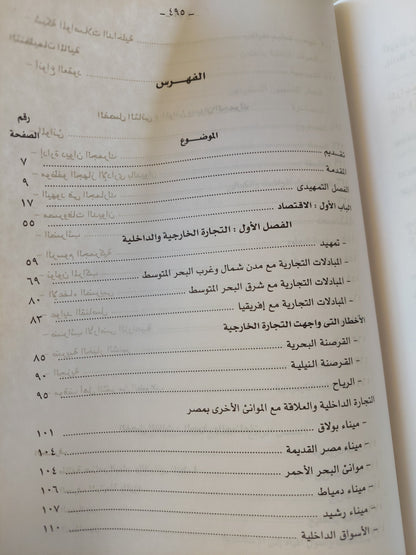 - ٤٩٥ -
الفهـرس
رقم
الموضـــوع الصفحة
تقديم ٧
المقدمة ٩
الفصل التمهيدى ١٧
الباب الأول : الاقتصاد ٥٥
الفصل الأول : التجارة الخارجية والداخلية
- تمهيد ٥٩
- المبادلات التجارية مع مدن شمال وغرب البحر المتوسط ٦٩
- المبادلات التجارية مع شرق البحر المتوسط ٨٠
- المبادلات التجارية مع إفريقيا ٨٣
الأخطار التى واجهت التجارة الخارجية
- القرصنة البحرية ٨٥
- القرصنة النيلية ٩٠
- الرياح ٩٥
التجارة الداخلية والعلاقة مع الموانئ الأخرى بمصر
- ميناء بولاق ١٠١
- ميناء مصر القديمة ١٠٤
- موانئ البحر الأحمر ١٠٤
- ميناء دمياط ١٠٦
- ميناء رشيد ١٠٧
- الأسواق الداخلية ١١٠